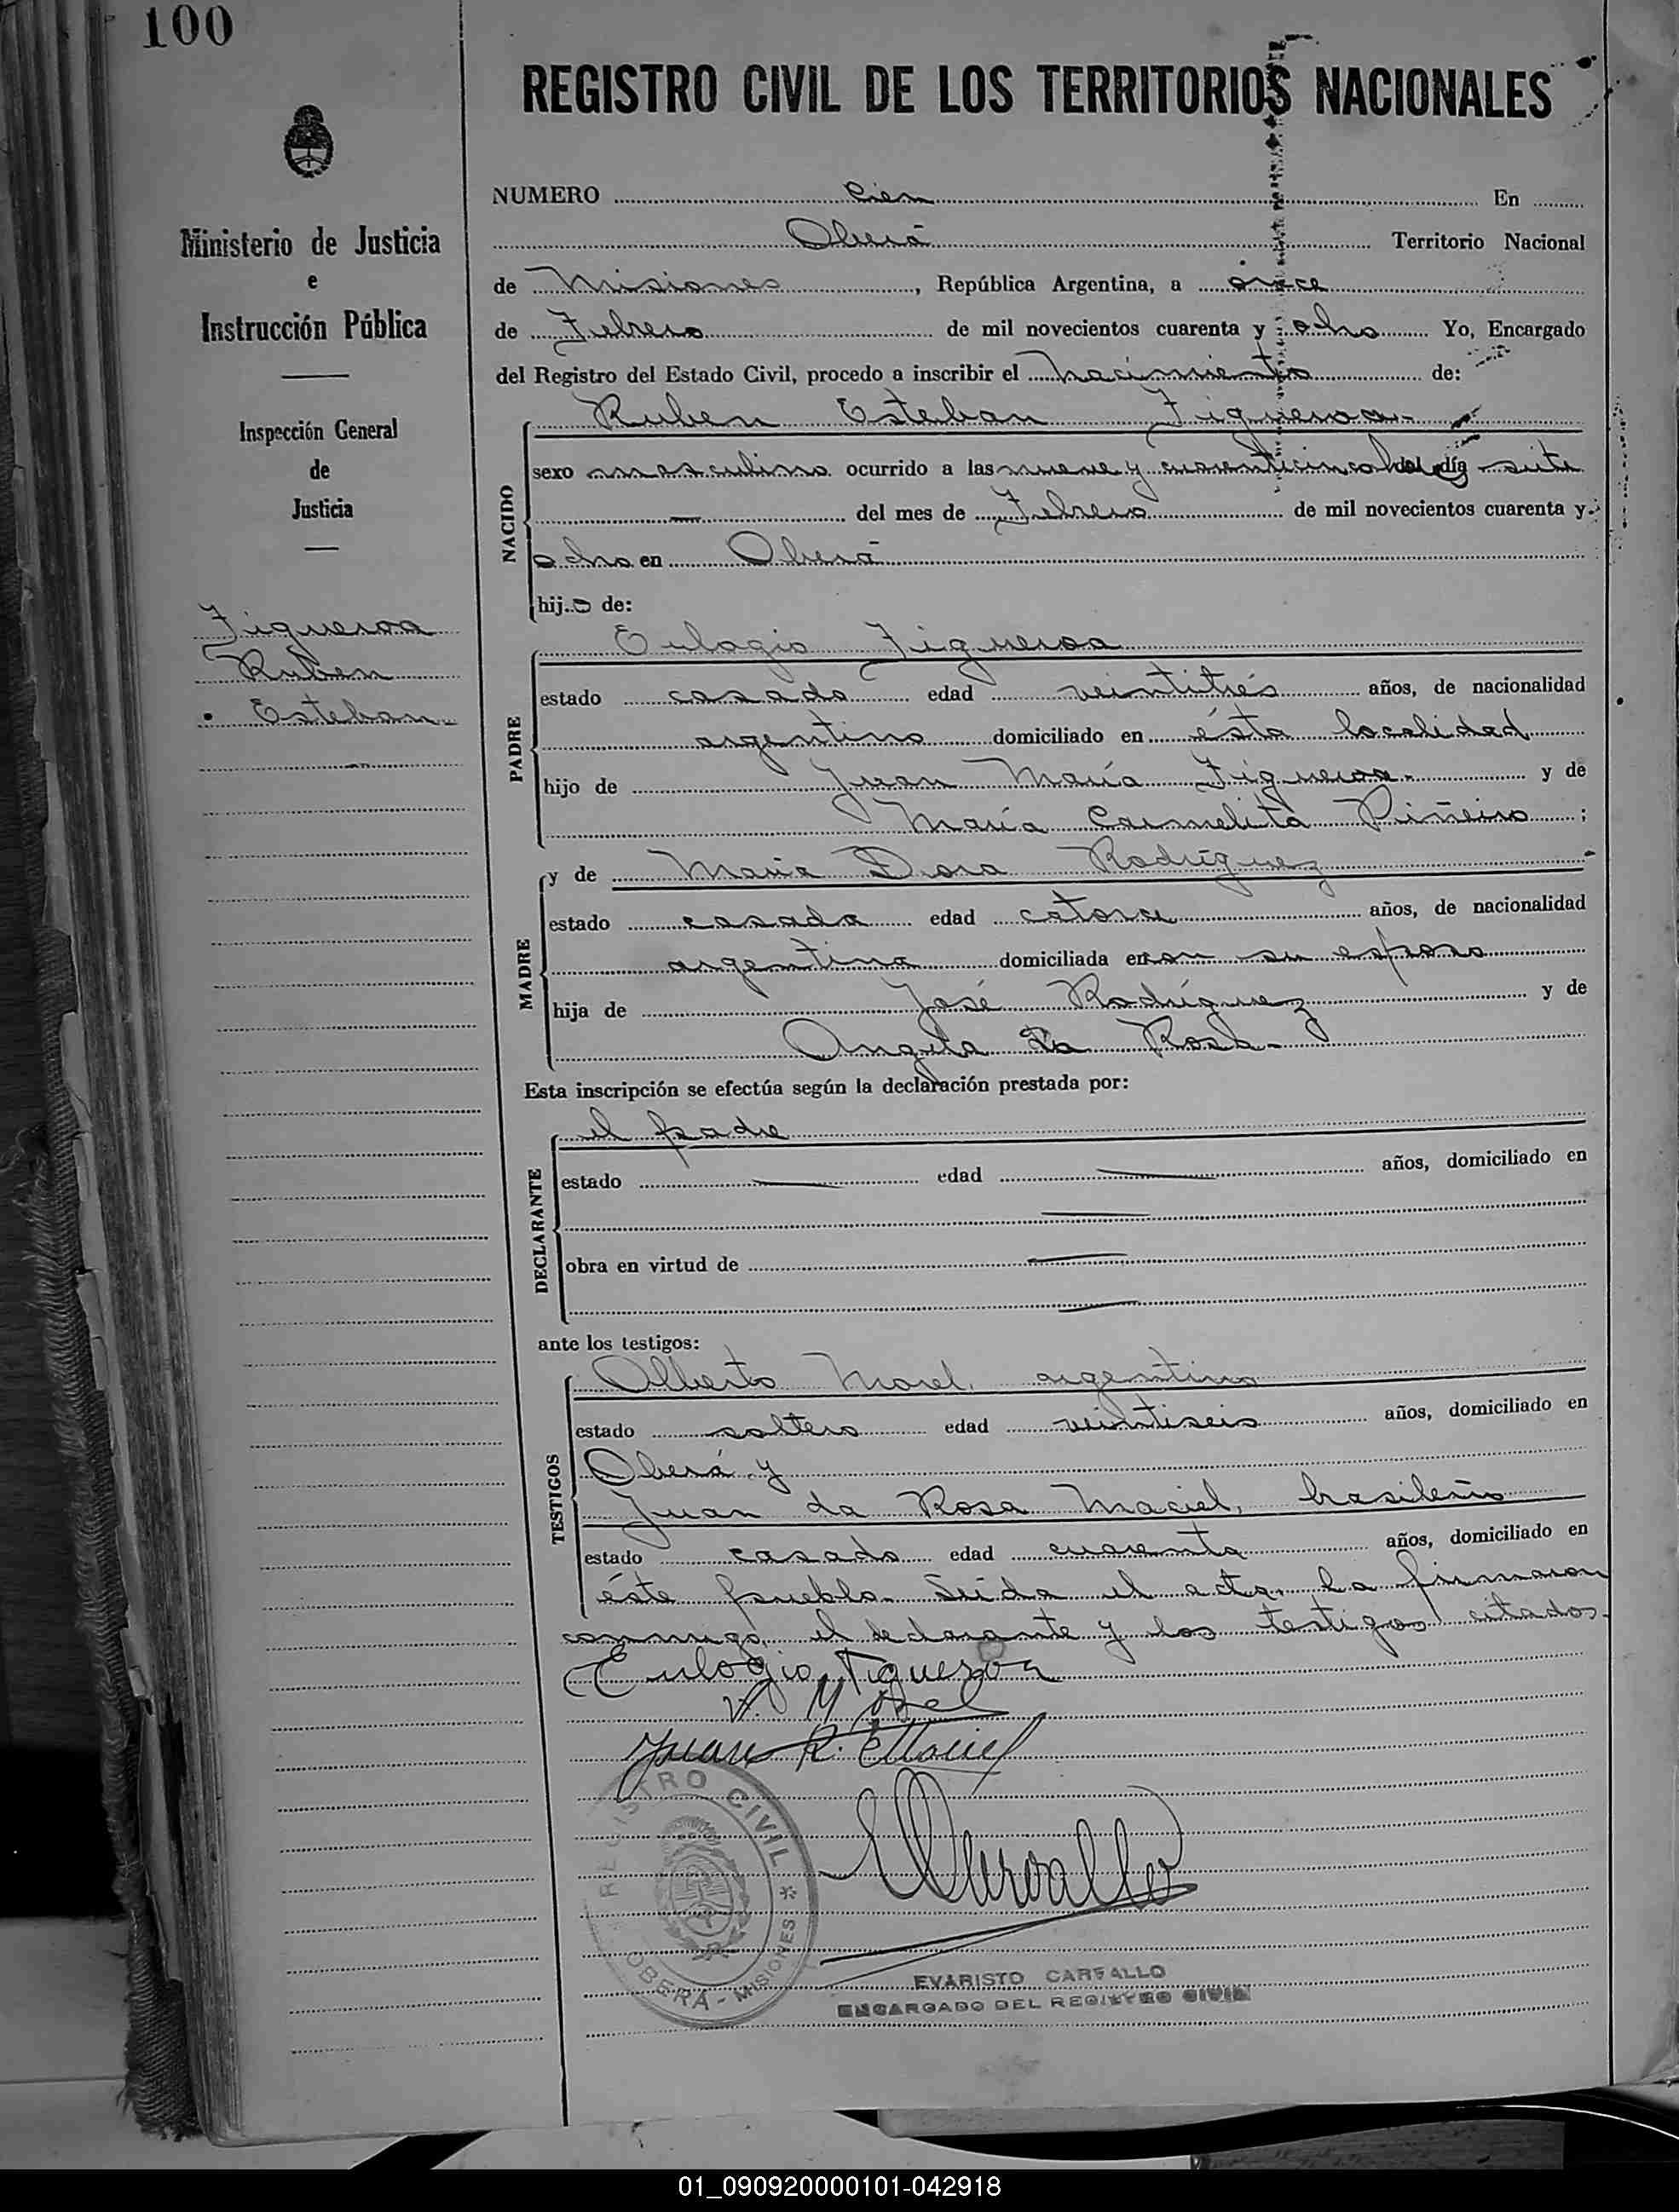 100
REGISTRO CIVIL DE LOS TERRITORIOS NACIONALES
Ministerio de Justicia
e
Instrucción Pública
Inspección General
de
Justicia
Figueroa
Ruben
Esteban
NUMERO Cien En
Oberá Territorio Nacional
de Misiones, República Argentina, a once
de Febrero de mil novecientos cuarenta y ocho Yo, Encargado
del Registro del Estado Civil, procedo a inscribir el nacimiento de:
Ruben Esteban Figueroa
NACIDO
sexo masculino ocurrido a las nueve y cuarenticinco del día siete
del mes de Febrero de mil novecientos cuarenta y
ocho en Oberá
hijo de:
PADRE
Eulogio Figueroa
estado casado edad veintitrés años, de nacionalidad
argentino domiciliado en ésta localidad
hijo de Juan María Figueroa y de
María Carmelita Piñeiro;
MADRE
y de Maria Dora Rodríguez
estado casada edad catorce años, de nacionalidad
argentina domiciliada en con su esposo
hija de José Rodríguez y de
Angela Da Rosa
Esta inscripción se efectúa según la declaración prestada por:
DECLARANTE
el padre
estado edad años, domiciliado en
obra en virtud de
ante los testigos:
TESTIGOS
Alberto Morel, argentino
estado soltero edad veintiseis años, domiciliado en
Oberá y
Juan da Rosa Maciel, brasileño
estado casado edad cuarenta años, domiciliado en
éste pueblo. Leída el acta, la firmaron
conmigo, el declarante y los testigos citados.
Eulogio Figueroa
A. Morel
Juan R. Maciel
REGISTRO CIVIL
OBERÁ - MISIONES
ECarvallo
EVARISTO CARVALLO
ENCARGADO DEL REGISTRO CIVIL
01_090920000101-042918